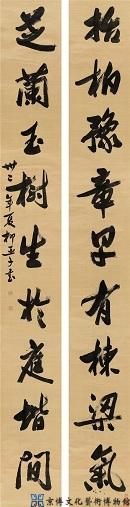 括柏豫章早有棟梁氣
芝蘭玉樹生於庭堦間
卅二年夏柳亞子書
京博文化藝術博物館